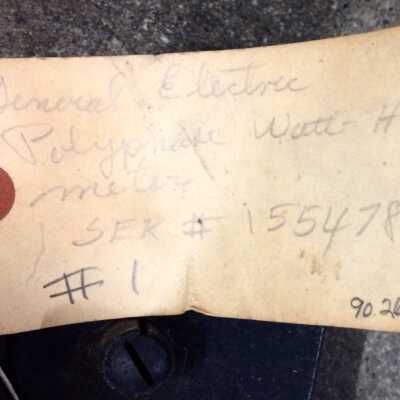 General Electric
Polyphase Watt-H
meter
SER # 155478
# 1
90.26